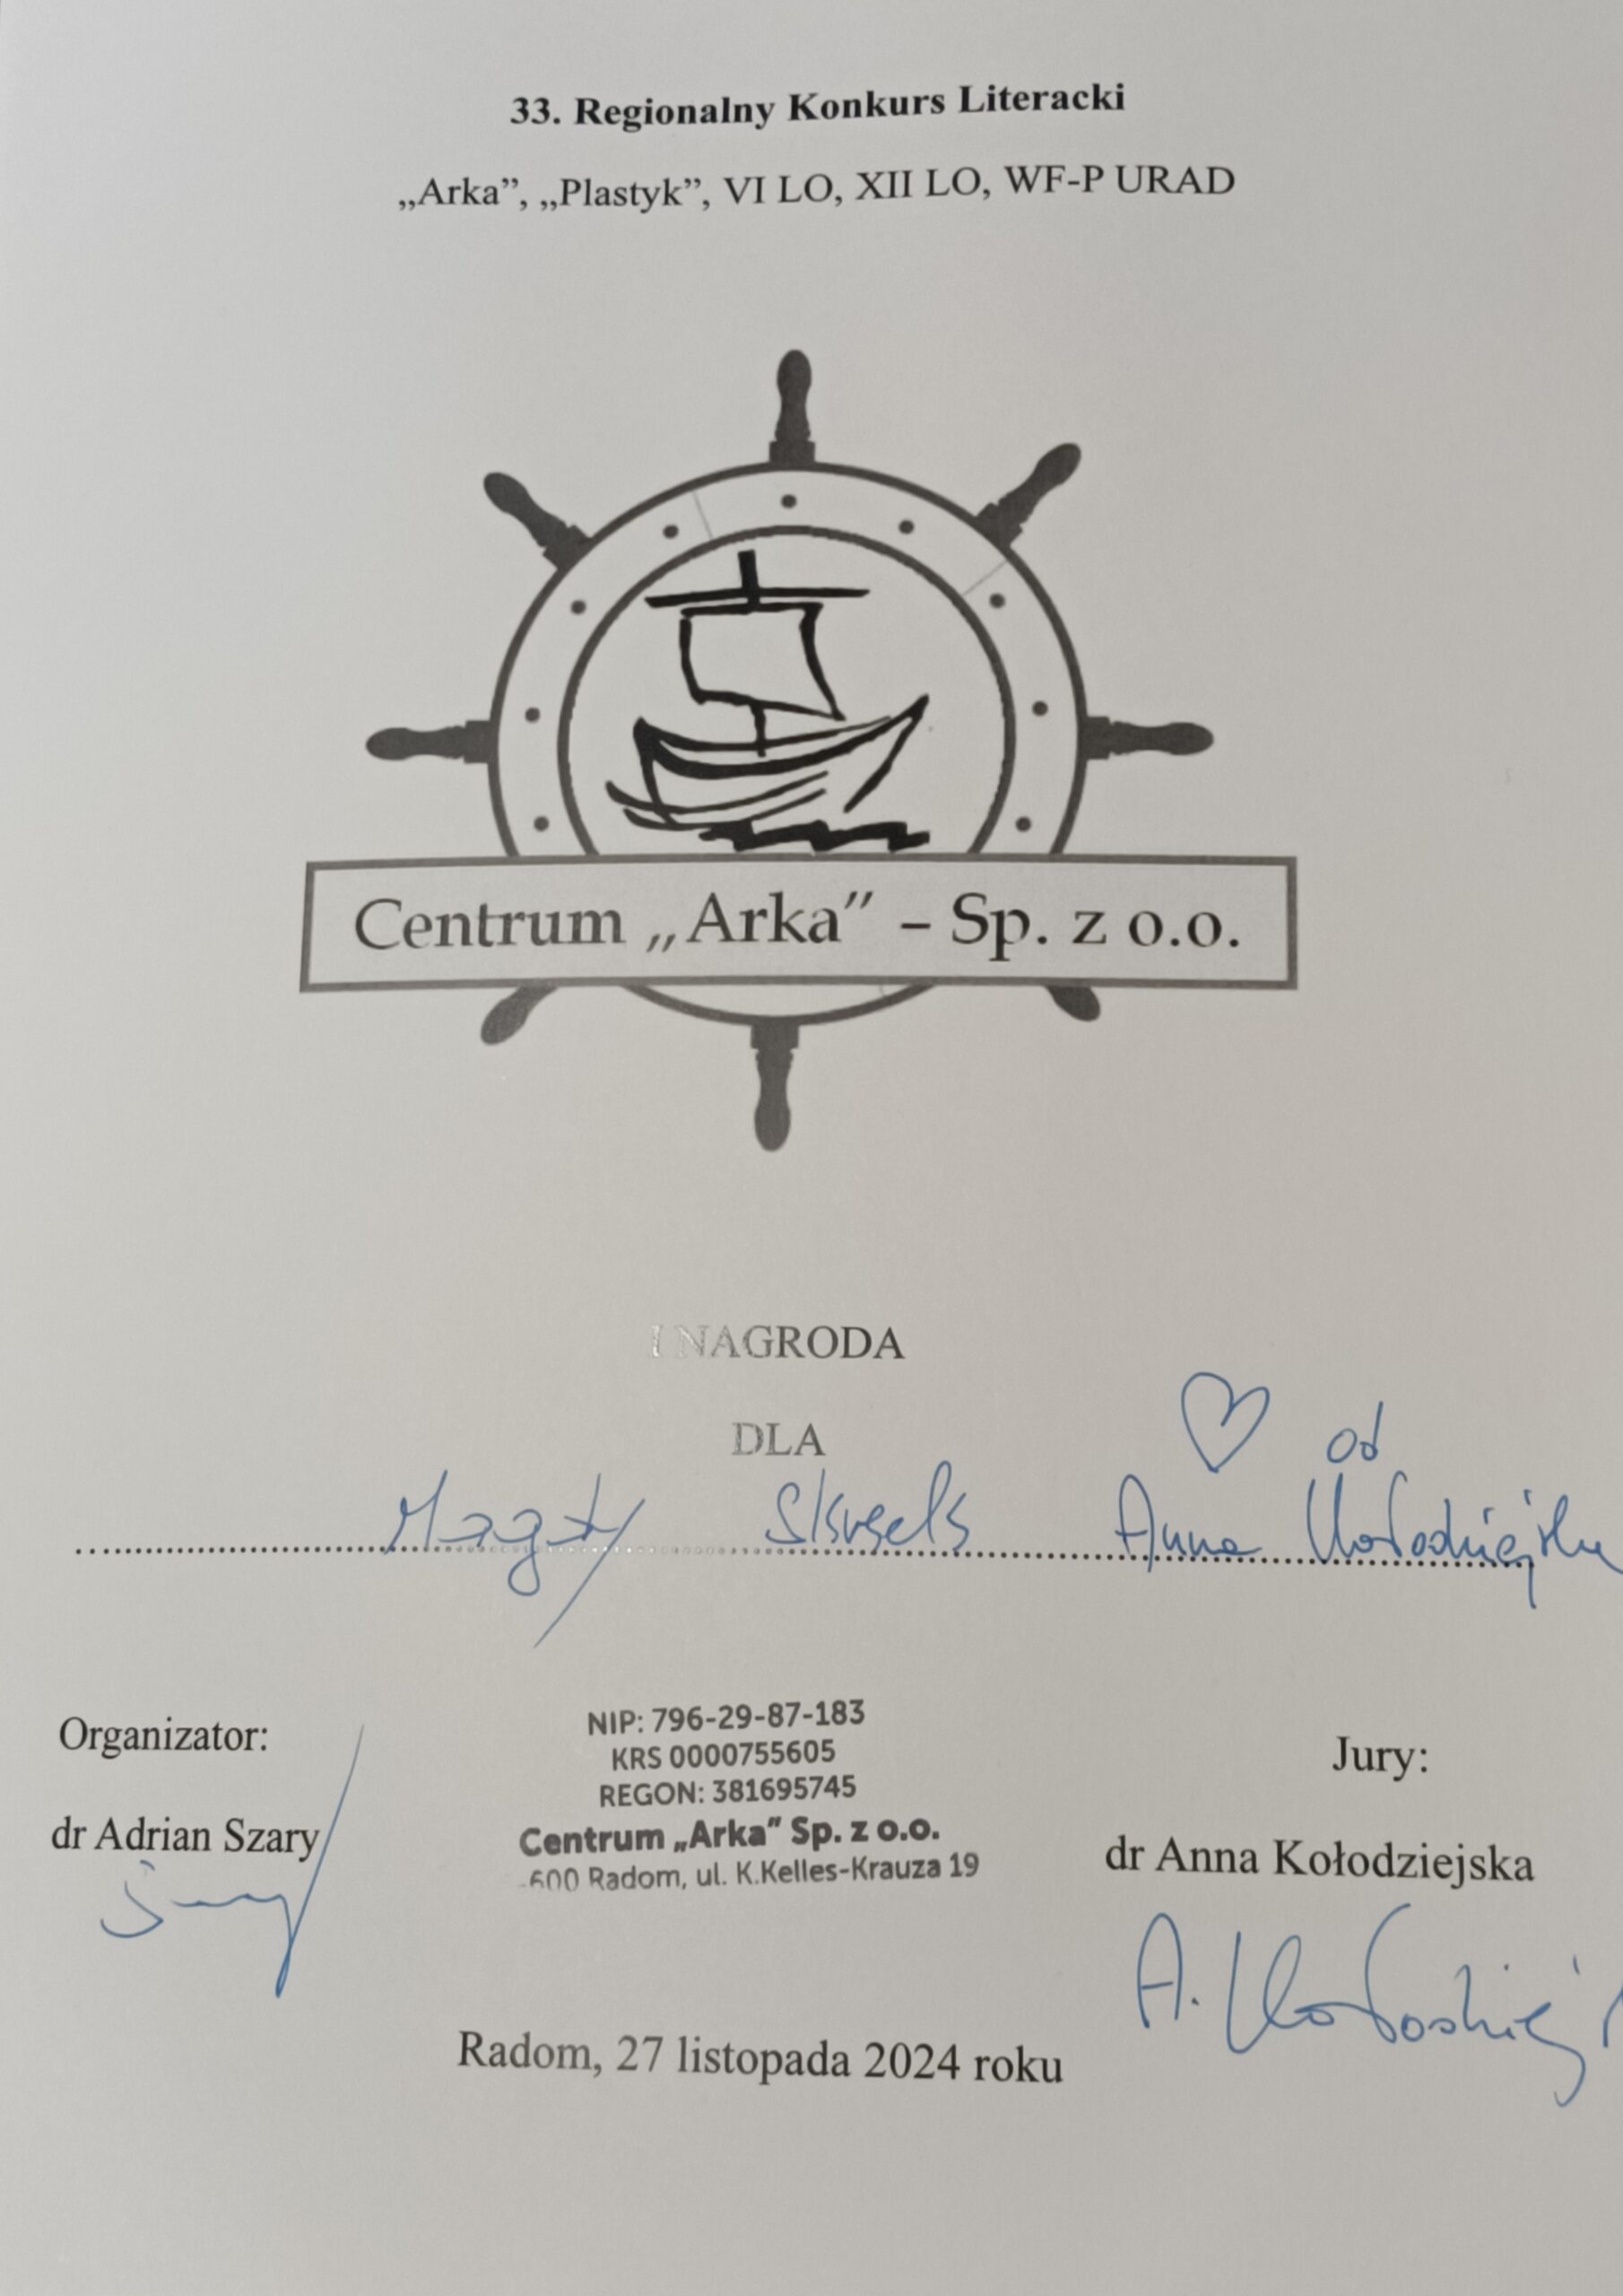 33. Regionalny Konkurs Literacki
„Arka”, „Plastyk”, VI LO, XII LO, WF-P URAD
Centrum „Arka” – Sp. z o.o.
I NAGRODA
DLA
od
Magdy Anna Kołodziejska
Organizator:
dr Adrian Szary
NIP: 796-29-87-183
KRS 0000755605
REGON: 381695745
Centrum „Arka” Sp. z o.o.
-600 Radom, ul. K.Kelles-Krauza 19
Jury:
dr Anna Kołodziejska
Radom, 27 listopada 2024 roku